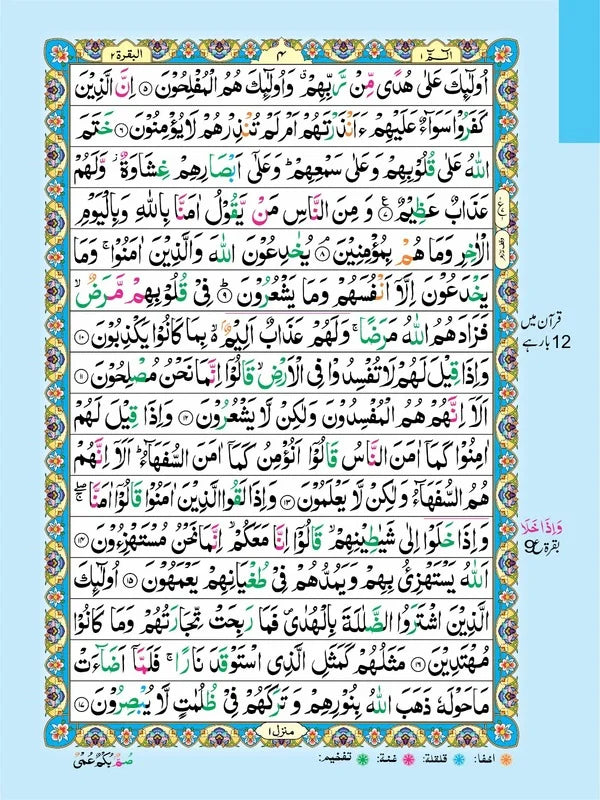 الٓمّٓ ١
۴
البقرة ٢
اُولٰٓئِكَ عَلٰى هُدًى مِّنْ رَّبِّهِمْ ۙ وَاُولٰٓئِكَ هُمُ الْمُفْلِحُوْنَ ۝۵ اِنَّ الَّذِيْنَ
كَفَرُوْا سَوَآءٌ عَلَيْهِمْ ءَاَنْذَرْتَهُمْ اَمْ لَمْ تُنْذِرْهُمْ لَا يُؤْمِنُوْنَ ۝۶ خَتَمَ
اللّٰهُ عَلٰى قُلُوْبِهِمْ وَعَلٰى سَمْعِهِمْ ؕ وَعَلٰٓى اَبْصَارِهِمْ غِشَاوَةٌ ؗ وَّلَهُمْ
عَذَابٌ عَظِيْمٌ ۝۷ وَ مِنَ النَّاسِ مَنْ يَّقُوْلُ اٰمَنَّا بِاللّٰهِ وَبِالْيَوْمِ
الْاٰخِرِ وَمَا هُمْ بِمُؤْمِنِيْنَ ۝۸ يُخٰدِعُوْنَ اللّٰهَ وَالَّذِيْنَ اٰمَنُوْا ۚ وَمَا
يَخْدَعُوْنَ اِلَّاۤ اَنْفُسَهُمْ وَمَا يَشْعُرُوْنَ ۝۹ فِيْ قُلُوْبِهِمْ مَّرَضٌ ۙ
فَزَادَهُمُ اللّٰهُ مَرَضًا ۚ وَلَهُمْ عَذَابٌ اَلِيْمٌۢ ۙ بِمَا كَانُوْا يَكْذِبُوْنَ ۝۱۰
وَاِذَا قِيْلَ لَهُمْ لَا تُفْسِدُوْا فِى الْاَرْضِ ۙ قَالُوْۤا اِنَّمَا نَحْنُ مُصْلِحُوْنَ ۝۱۱
اَلَاۤ اِنَّهُمْ هُمُ الْمُفْسِدُوْنَ وَلٰكِنْ لَّا يَشْعُرُوْنَ ۝۱۲ وَاِذَا قِيْلَ لَهُمْ
اٰمِنُوْا كَمَاۤ اٰمَنَ النَّاسُ قَالُوْۤا اَنُؤْمِنُ كَمَاۤ اٰمَنَ السُّفَهَآءُ ؕ اَلَاۤ اِنَّهُمْ
هُمُ السُّفَهَآءُ وَلٰكِنْ لَّا يَعْلَمُوْنَ ۝۱۳ وَاِذَا لَقُوا الَّذِيْنَ اٰمَنُوْا قَالُوْۤا اٰمَنَّا ۖۚ
وَاِذَا خَلَوْا اِلٰى شَيٰطِيْنِهِمْ ۙ قَالُوْۤا اِنَّا مَعَكُمْ ۙ اِنَّمَا نَحْنُ مُسْتَهْزِءُوْنَ ۝۱۴
اَللّٰهُ يَسْتَهْزِئُ بِهِمْ وَيَمُدُّهُمْ فِيْ طُغْيَانِهِمْ يَعْمَهُوْنَ ۝۱۵ اُولٰٓئِكَ
الَّذِيْنَ اشْتَرَوُا الضَّلٰلَةَ بِالْهُدٰى ۪ فَمَا رَبِحَتْ تِّجَارَتُهُمْ وَمَا كَانُوْا
مُهْتَدِيْنَ ۝۱۶ مَثَلُهُمْ كَمَثَلِ الَّذِى اسْتَوْقَدَ نَارًا ۚ فَلَمَّاۤ اَضَآءَتْ
مَا حَوْلَهٗ ذَهَبَ اللّٰهُ بِنُوْرِهِمْ وَ تَرَكَهُمْ فِيْ ظُلُمٰتٍ لَّا يُبْصِرُوْنَ ۝۱۷
قرآن میں
12 بار ہے
وَاِذَا خَلَا
بقرۃ ع9
منزل ١
اخفا: قلقلة: غنة: تفخیم:
صُمٌّۢ بُكْمٌ عُمْىٌ